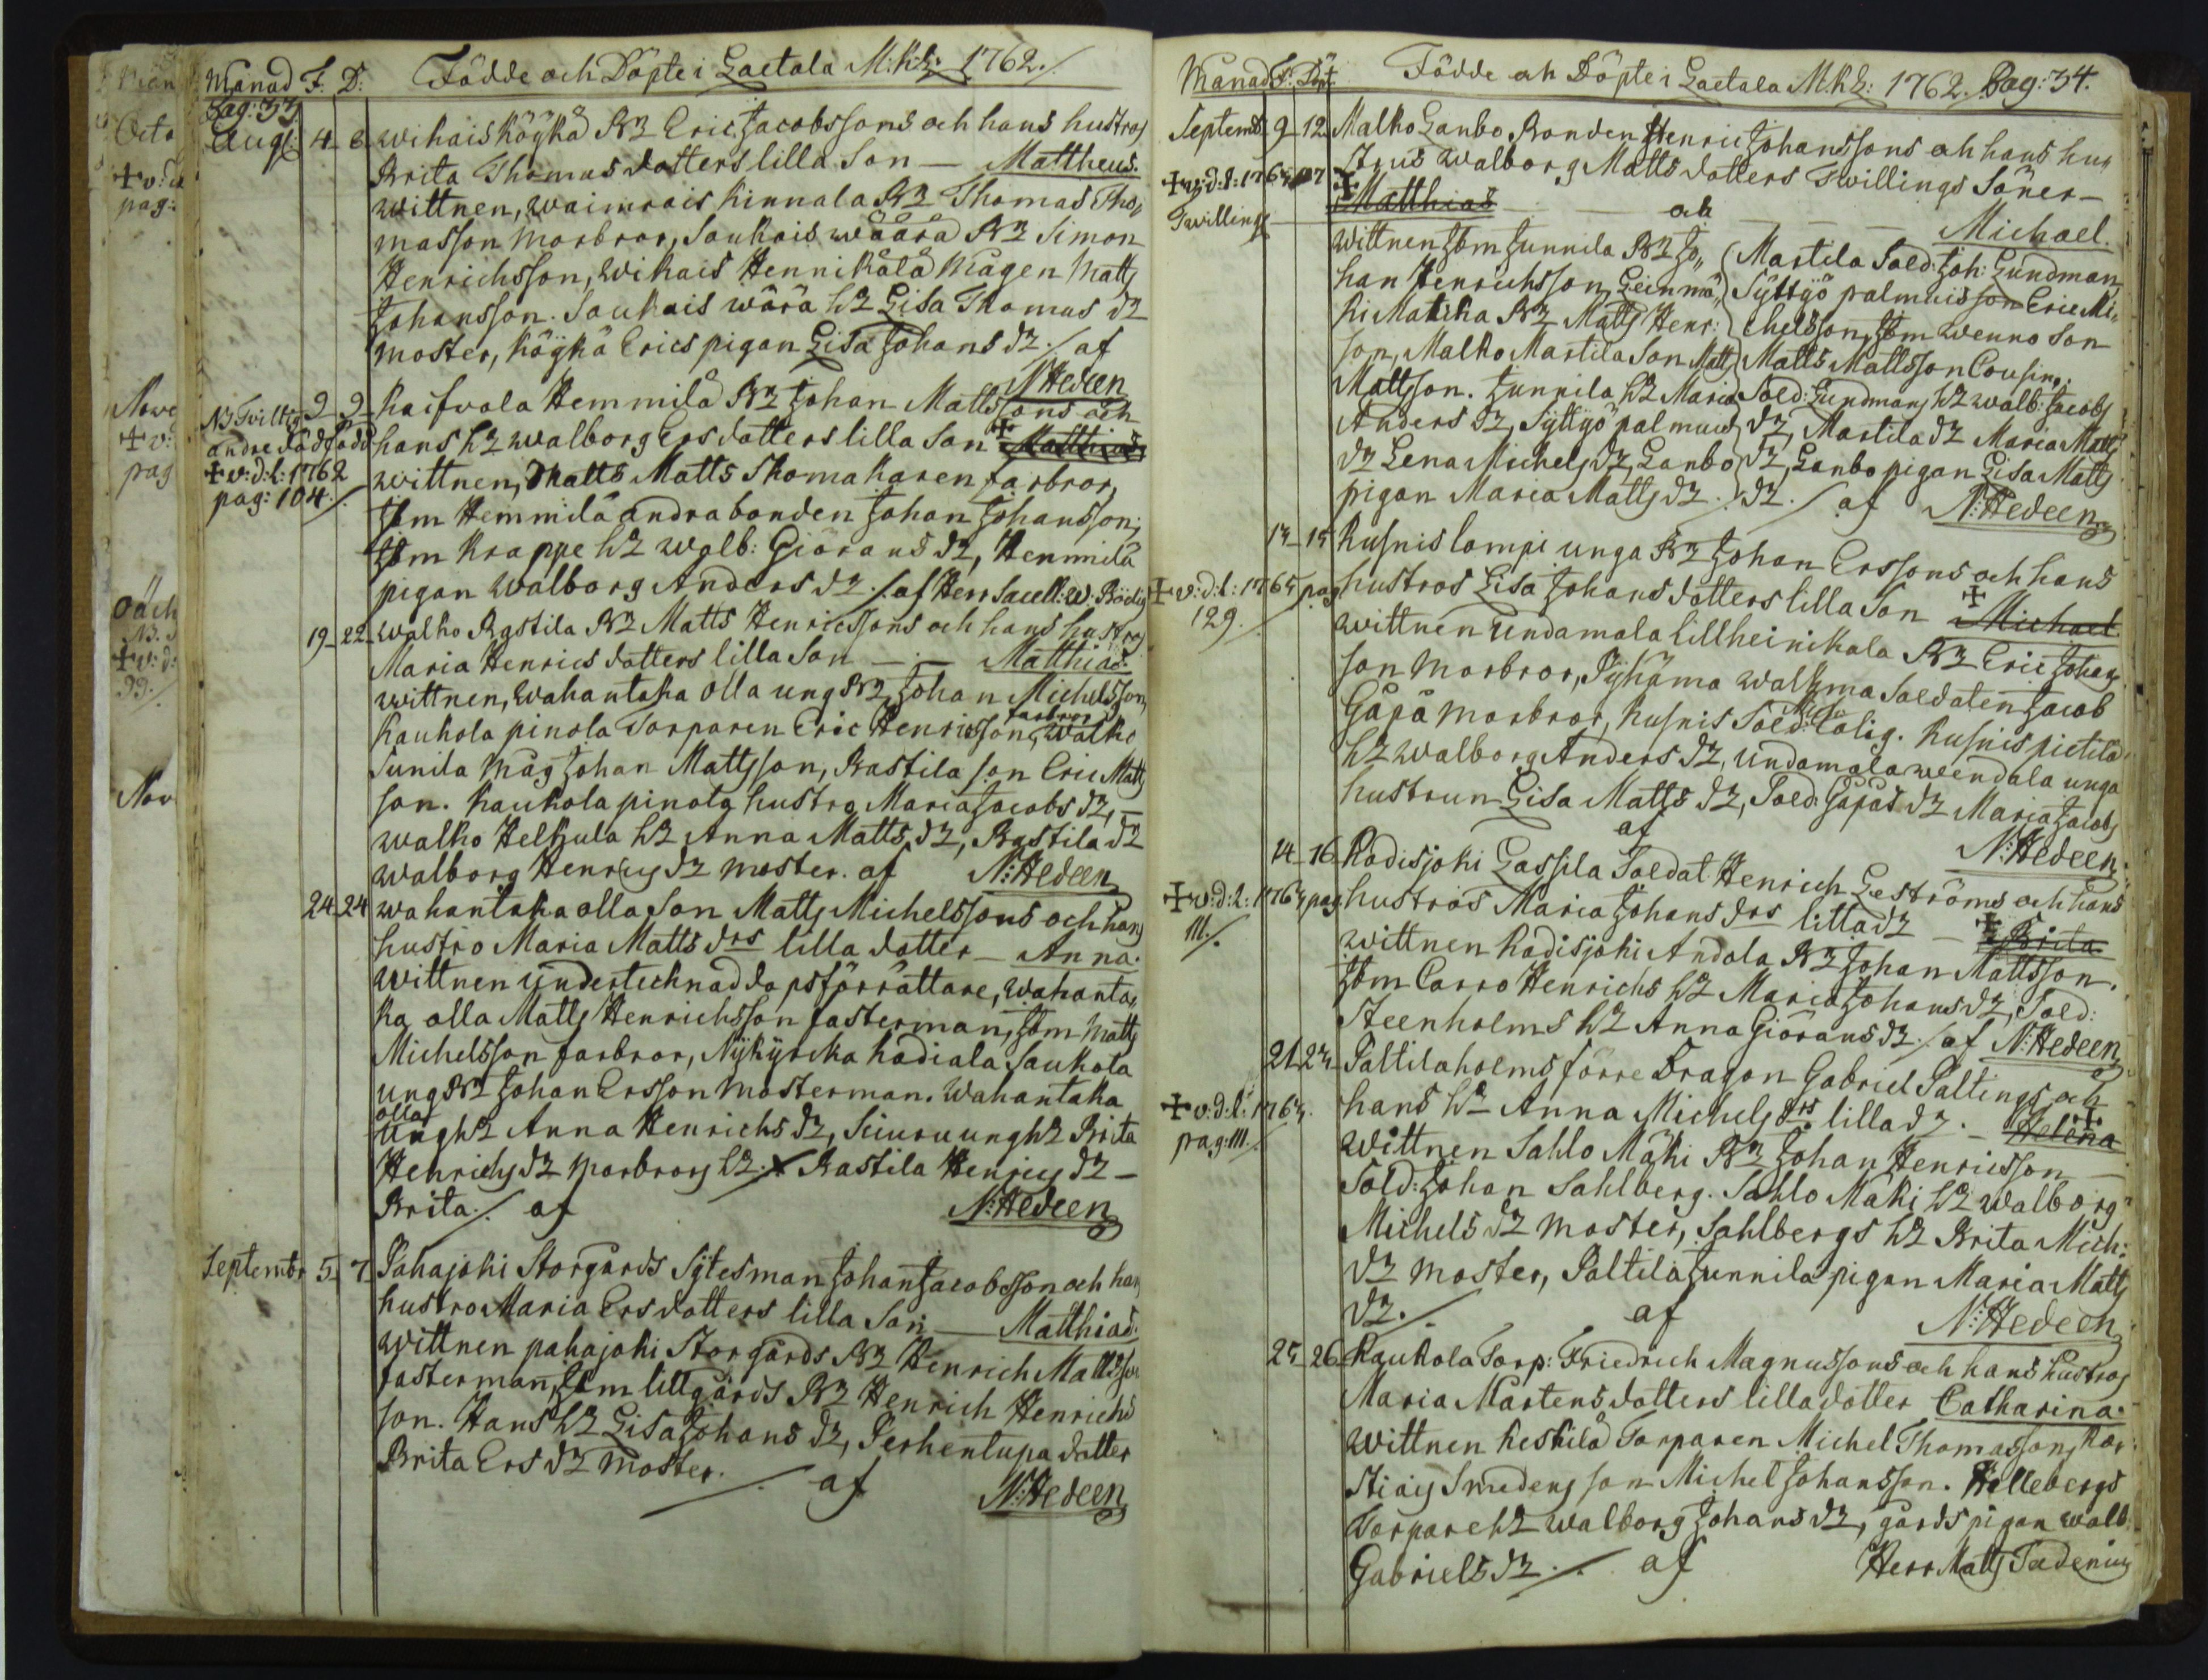 Månad F: D: Födde och Döpte i Laetala M:K:L: 1762./
Pag: 33
Aug: 4 8 Wihais Köykä B2 Eric Jacobssons och hans hustros
Brita Thomas dotters lilla Son — Mattheus.
Wittnen, Waimrais Kinnala B2 Thomas Tho,
masson Morbror, Saukais Wäärä B2 Simon
Henrichsson, Wikais Hennikälä Mågen Matts
Johansson. Saukais wärä h2 Lisa Thomas d2
Moster, Köykä Erics pigan Lisa Johans d2./ af
N Hedeen
NB Tvilling 9 9 Kaifvola Hemmilä B2 Johan Mattssons och
andre dödfödd hans h2 Walborg Ersdotters lilla Son Matthias
v: d: l: 1762 Wittnen, Matts Matts Skomakaren farbror,
pag: 104./ Jtm Hemmilä andra bonden Johan Johansson;
Jtm Krappe h2 Walb: Giörans d2, Hemmilä
pigan Walborg Anders d2./ af Herr Sacell: W. Rödig
19 22 Walko Rastila B2 Matts Henricssons och hans hustros
Maria Henrics dotters lilla Son — Matthias.
Wittnen, Wahantaka Olla ung B2 Johan Michelsson,
farbror
Kaukola pinola Torparen Eric Henricsson, Walko
Sunila Måg Johan Mattsson, Rastila son Eric Matts
son. Kaukola pinola hustro Maria Jacobs d2,
Walko Helkula h2 Anna Matts d2, Rastila d2
Walborg Henrics d2 Moster. af N: Hedeen
24 24 Wahantaka olla Son Matts Michelssons och hans
hustro Maria Matts drs lilla dotter — Anna.
Wittnen undertechnad dopsförrättare, Wahanta,
ka olla Matts Henrichsson fasterman, Jtm Matts
Michelsson farbror, Nykyrcka Kodiala Saukola
ung B2 Johan Ersson Mosterman. Wahantaka
olla
Ung h2 Anna Henrichs d2, Siuru ung h2 Brita
Henrichs d2 Morbrors h2. Rastila Henrics d2 —
Brita./ af N: Hedeen
Septembr 5 7 Pahajoki Storgårds Sytesman Johan Jacobsson och hans
hustro Maria Ersdotters lilla Son — Matthias.
Wittnen pahajoki Storgårds B2 Henrich Mattsson
fasterman, Jtm lillgårds B2 Henrich Henrichs
son. Hans h2 Lisa Johans d2, Perhentupa dotter
Brita Ers d2 Moster. / af
N: Hedeen
Månad F: Döpt. Födde och Döpte i Laetala M.K.L: 1762. Pag: 34.
Septemb 9 12 Malko Lanbo Bonden Henric Johanssons och hans hu,
v: d: l: 1765 strus Walborg Matts dotters Twillings Söner —
Twillings Matthias — och — Michael.
Wittnen Jtm Junnila B2 Jo,,
han Henrichsson, Leinmä,,
ki Matska B2 Matts Henr:
son, Malko Martila Son Matts
Mattsson. Junnila h2 Maria
Anders d2, Syttyö palmuis
d2 Lena Michels d2, Lanbo
pigan Maria Matts d2.
Martila Sold: Joh: Lundman,
Syttyö palmuis son Eric Mi,
chelsson, Jtm Wenno Son
Matts Mattsson Cousin,
Sold: Lundmans h2 Walb: Jacobs
d2, Martila d2 Maria Matts
d2, Lanbo pigan Lisa Matts
d2./ af N: Hedeen
13 15 Kusnis lampi unga B2 Johan Erssons och hans
v: d: l: 1765 pag hustros Lisa Johans dotters lilla Son Michael
129./ Wittnen Undamala lillheinikala B2 Eric Johans
son Morbror, Pyhäma Walkma Soldaten Jacob
Gäpä Morbror, Kusnis Sold: Cålig. Kusnis pietilä
h2 Walborg Anders d2, Undamala Wendala unga
hustrun Lisa Matts d2, Sold: Gäpäs d2 Maria Jacobs
af N: Hedeen
14 16 Kodisjoki Lassila Soldat Henrich Leströms och hans
v: d: l: 1763 pag hustros Maria Johans drs lilla d2 — Brita.
111./ Wittnen Kodisjoki Andola B2 Johan Mattsson.
Jtm Carro Henrichs h2 Maria Johans d2, Sold:
Steenholms h2 Anna Giörans d2./ af N: Hedeen
21 23 Paltila holms förre Dragon Gabriel Paltings och
v: d: l: 1763. hans h2 Anna Michels drs lilla d2. — Helena
pag: 111./ Wittnen Sahlo Mäki B2 Johan Henricsson
Sold: Johan Sahlberg. Sahlo Mäki h2 Walborg
Michels d2 Moster, Sahlbergs h2 Brita Mich:
d2 Moster, Paltila Junnila pigan Maria Matts
d2./ af N: Hedeen
25 26 Kaukola Torp: Friedrich Magnussons och hans hustros
Maria Mårtens dotters lilla dotter Catharina.
Wittnen Keskilä Torparen Michel Thomasson, Kar,
Smedens son Michel Johansson. Hellebergs
Torpare h2 Walborg Johans d2, gårds pigan Walb:
Gabriels d2./ af Herr Matts Tadenius